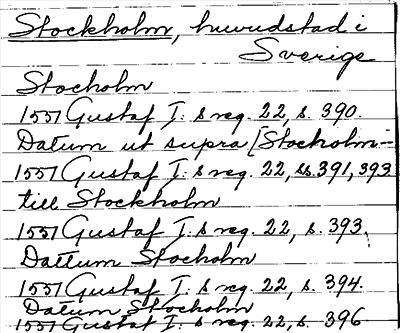 Stockholm, huvudstad i
Sverige
Stocholm
1557 Gustaf I: s reg. 22, s. 390.
Datum ut supra [Stocholm-
1557 Gustaf I: s reg. 22, ss. 391, 393
till Stockholm
1557 Gustaf I: s reg. 22, s. 393.
Dattum Stocholm
1557 Gustaf I: s reg. 22, s. 394.
Datum Stocholm
1557 Gustaf I: s reg. 22, s. 396